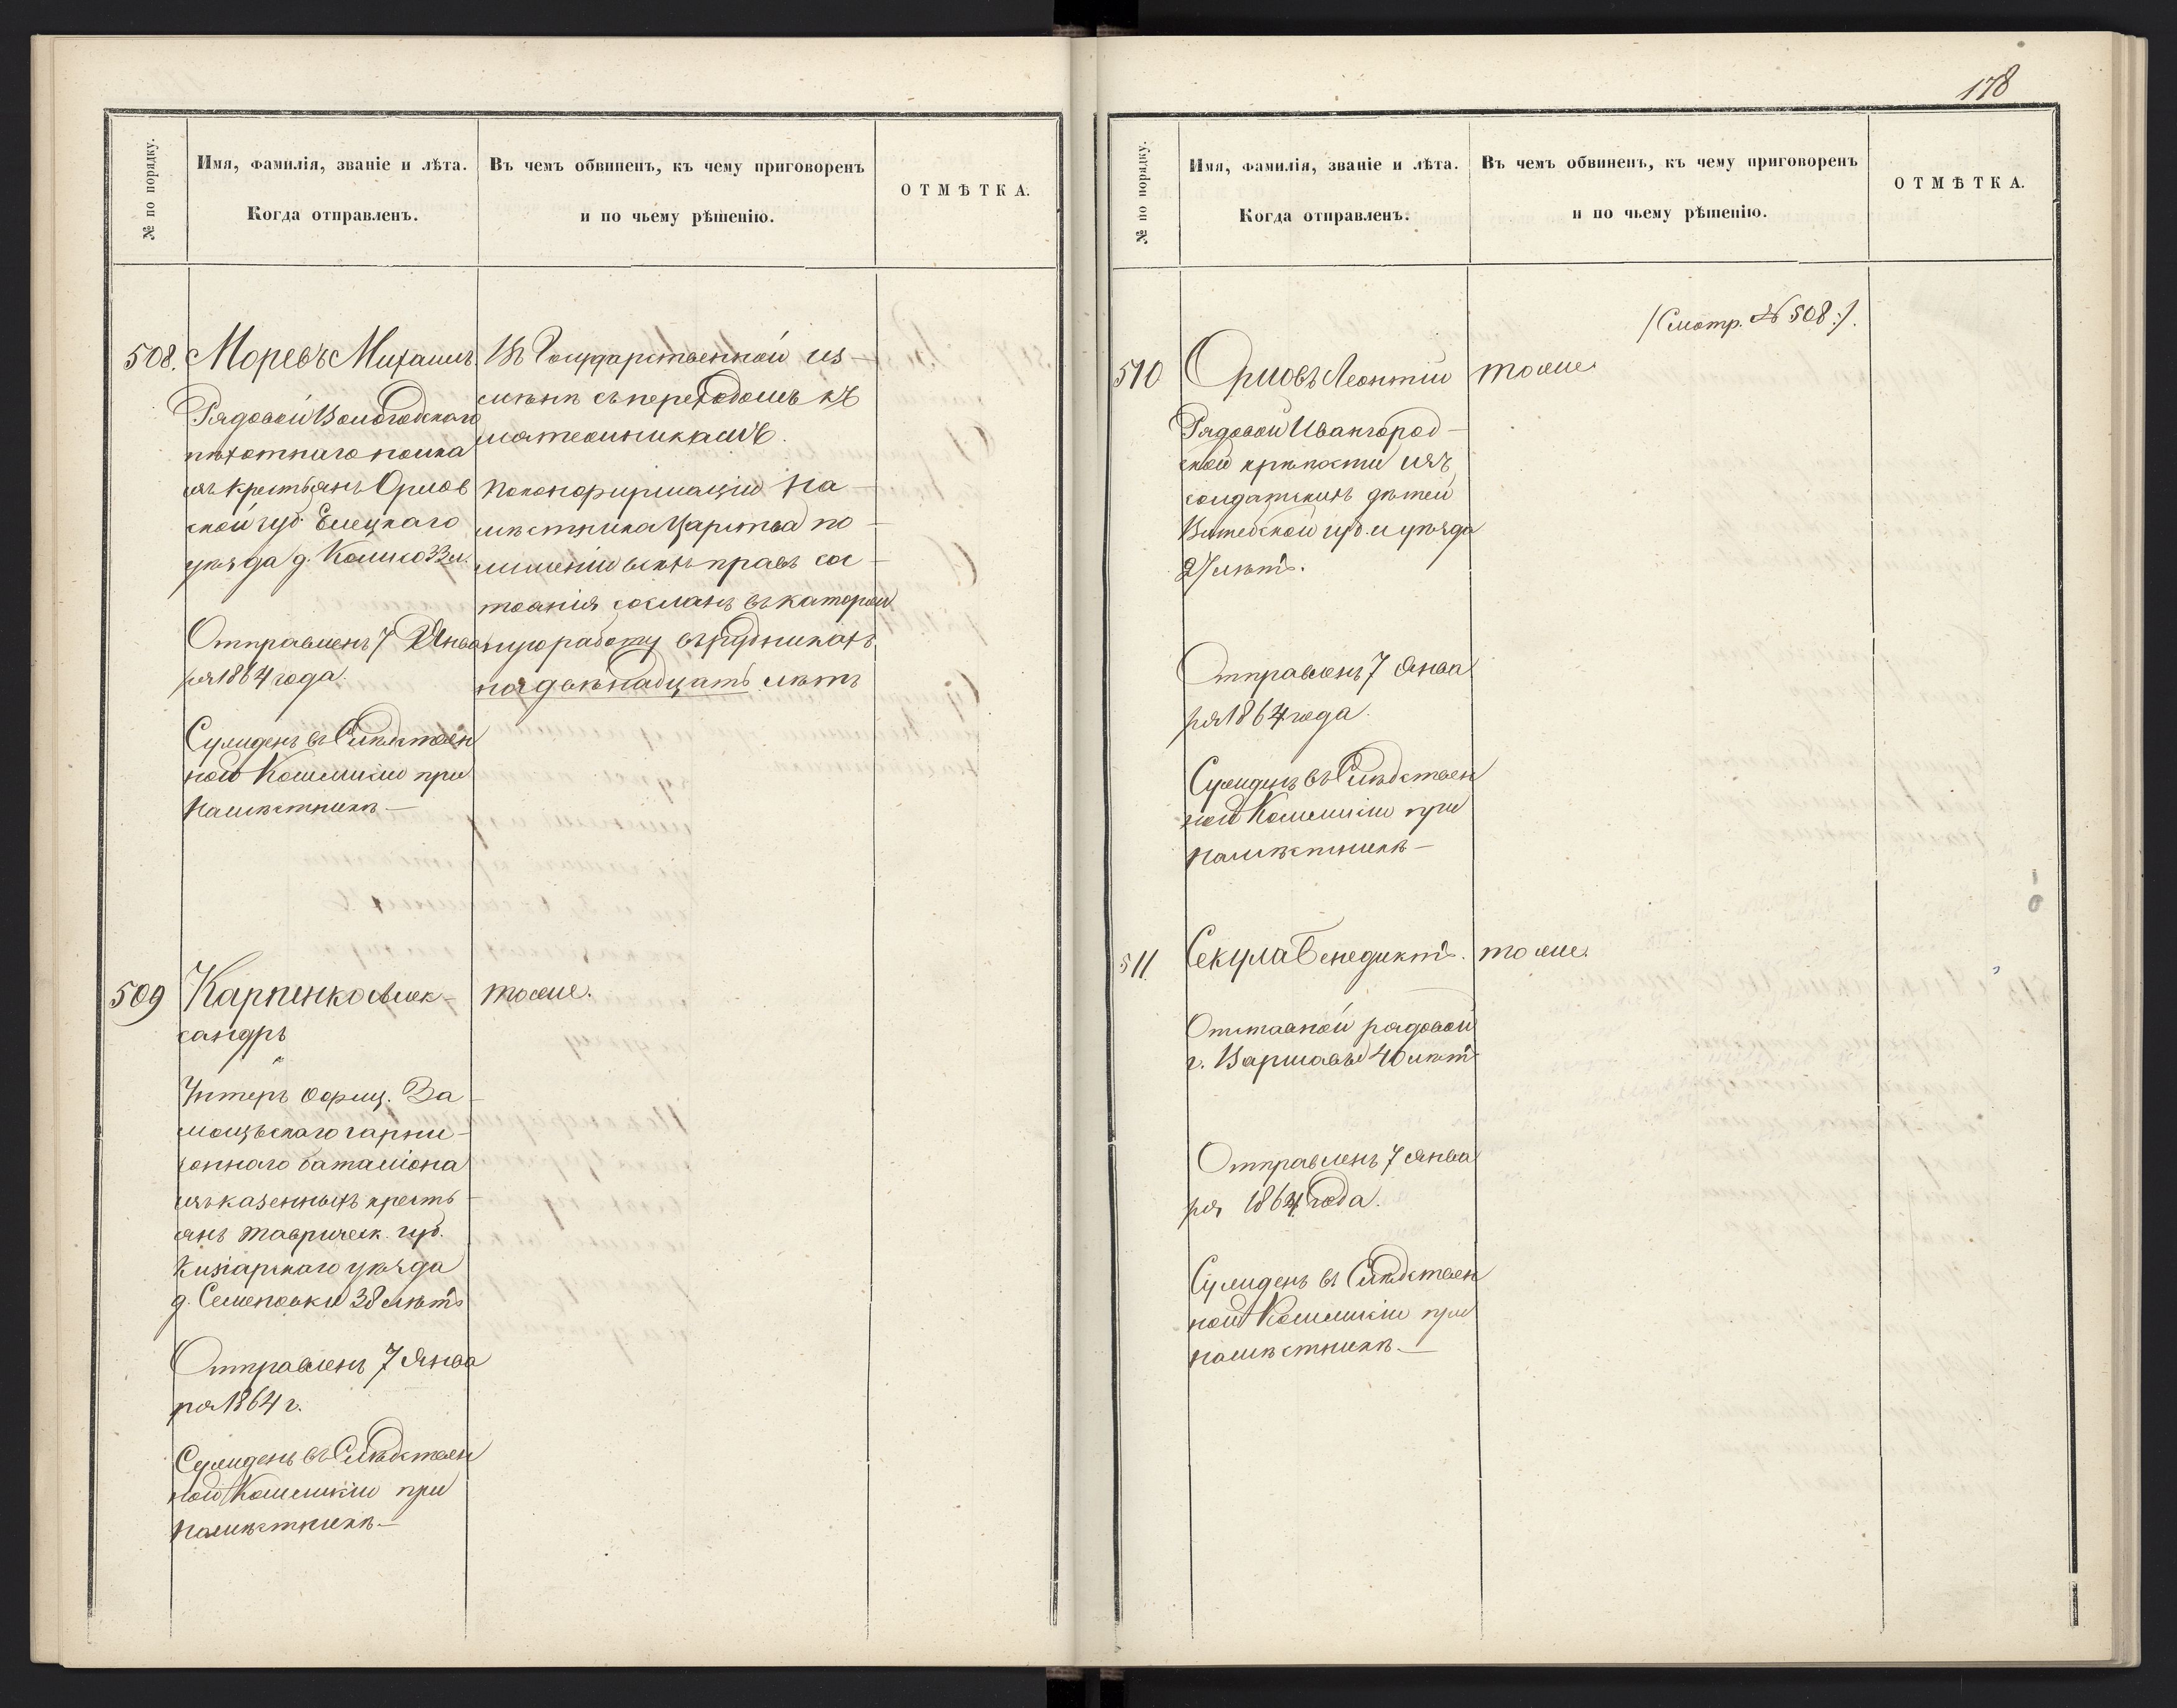 № по порядку.
Имя, фамилія, званіе и лѣта.
Когда отправленъ.
Въ чемъ обвиненъ, къ чему приговоренъ
и по чьему рѣшенію.
ОТМѢТКА.
508. Моревъ Михаилъ.
Рядовой Вологодскаго
пѣхотнаго полка
изъ крестьянъ Орлов
ской губ. Елецкаго
уѣзда д.
Отправленъ 7 Янва
ря 1864 года.
Сужденъ въ Слѣдствен
ной Коммисіи при
Намѣстникѣ —
Въ Государственной из-
мѣнѣ съ переходомъ къ
мятежникамъ.
По конфирмаціи На-
мѣстника Царства по
лишеніи всѣхъ правъ сос-
тоянія сосланъ въ каторж
ную работу въ рудникахъ
на двѣнадцать лѣтъ
509 Карпенко Алек-
сандръ
Унтеръ Офиц. За-
мосцьскаго гарни-
зоннаго баталіона
изъ казенныхъ кресть-
янъ Таврическ. губ.
уѣзда
д. Семеновки 38 лѣтъ
Отправленъ 7 Янва
ря 1864 г.
Сужденъ въ Слѣдствен
ной Коммисіи при
Намѣстникѣ —
тоже.
178
№ по порядку.
Имя, фамилія, званіе и лѣта.
Когда отправленъ.
Въ чемъ обвиненъ, къ чему приговоренъ
и по чьему рѣшенію.
ОТМѢТКА.
/Смотр. № 508:/.
510 Орловъ Леонтій
тоже
Рядовой Ивангород-
ской крѣпости изъ
солдатскихъ дѣтей
Витебской губ. и уѣзда
27 лѣтъ.
Отправленъ 7 Янва
ря 1864 года.
Сужденъ въ Слѣдствен
ной Коммисіи при
Намѣстникѣ —
511 Секула Бенедиктъ.
тоже.
Отставной рядовой
г. Варшавы 40 лѣтъ
Отправленъ 7 Янва
ря 1864 года.
Сужденъ въ Слѣдствен
ной Коммисіи при
Намѣстникѣ. —